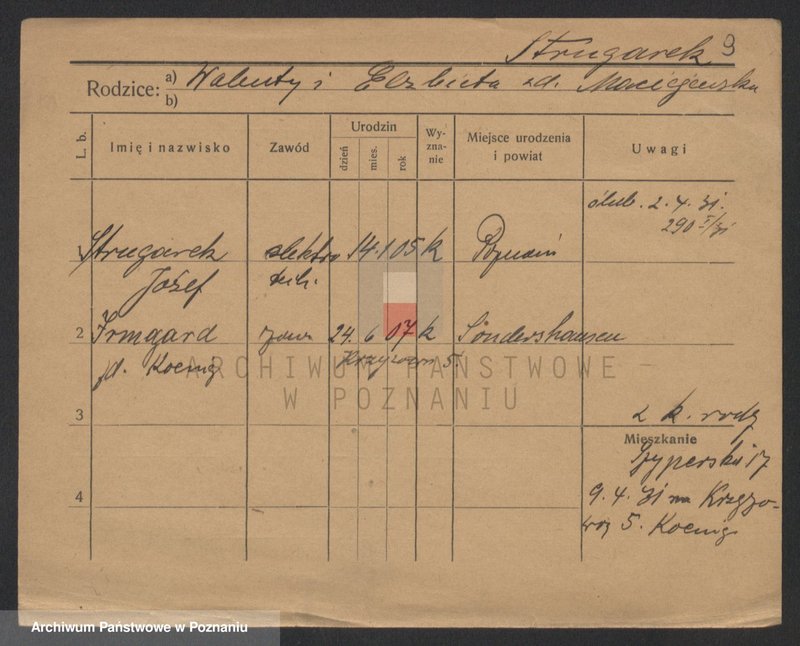 Strugarek 9
Rodzice: a) Walenty i Elżbieta zd. Maciejewska
b)
L. b. Imię i nazwisko Zawód Urodzin dzień mies. rok Wy-zna-nie Miejsce urodzenia i powiat Uwagi
ślub. 2. 4. 31.
290 I/31
1 Strugarek elektro 14. 1 05 k Poznań
Józef tech.
2 Irmgard żona 24. 6 07 k Sondershausen
zd. Koenig 5.
ARCHIWUM PAŃSTWOWE
W POZNANIU
3
2 k. rodz
Mieszkanie
17
4
9. 4. 31 na Krzyżo-
wą 5. Koenig
Archiwum Państwowe w Poznaniu